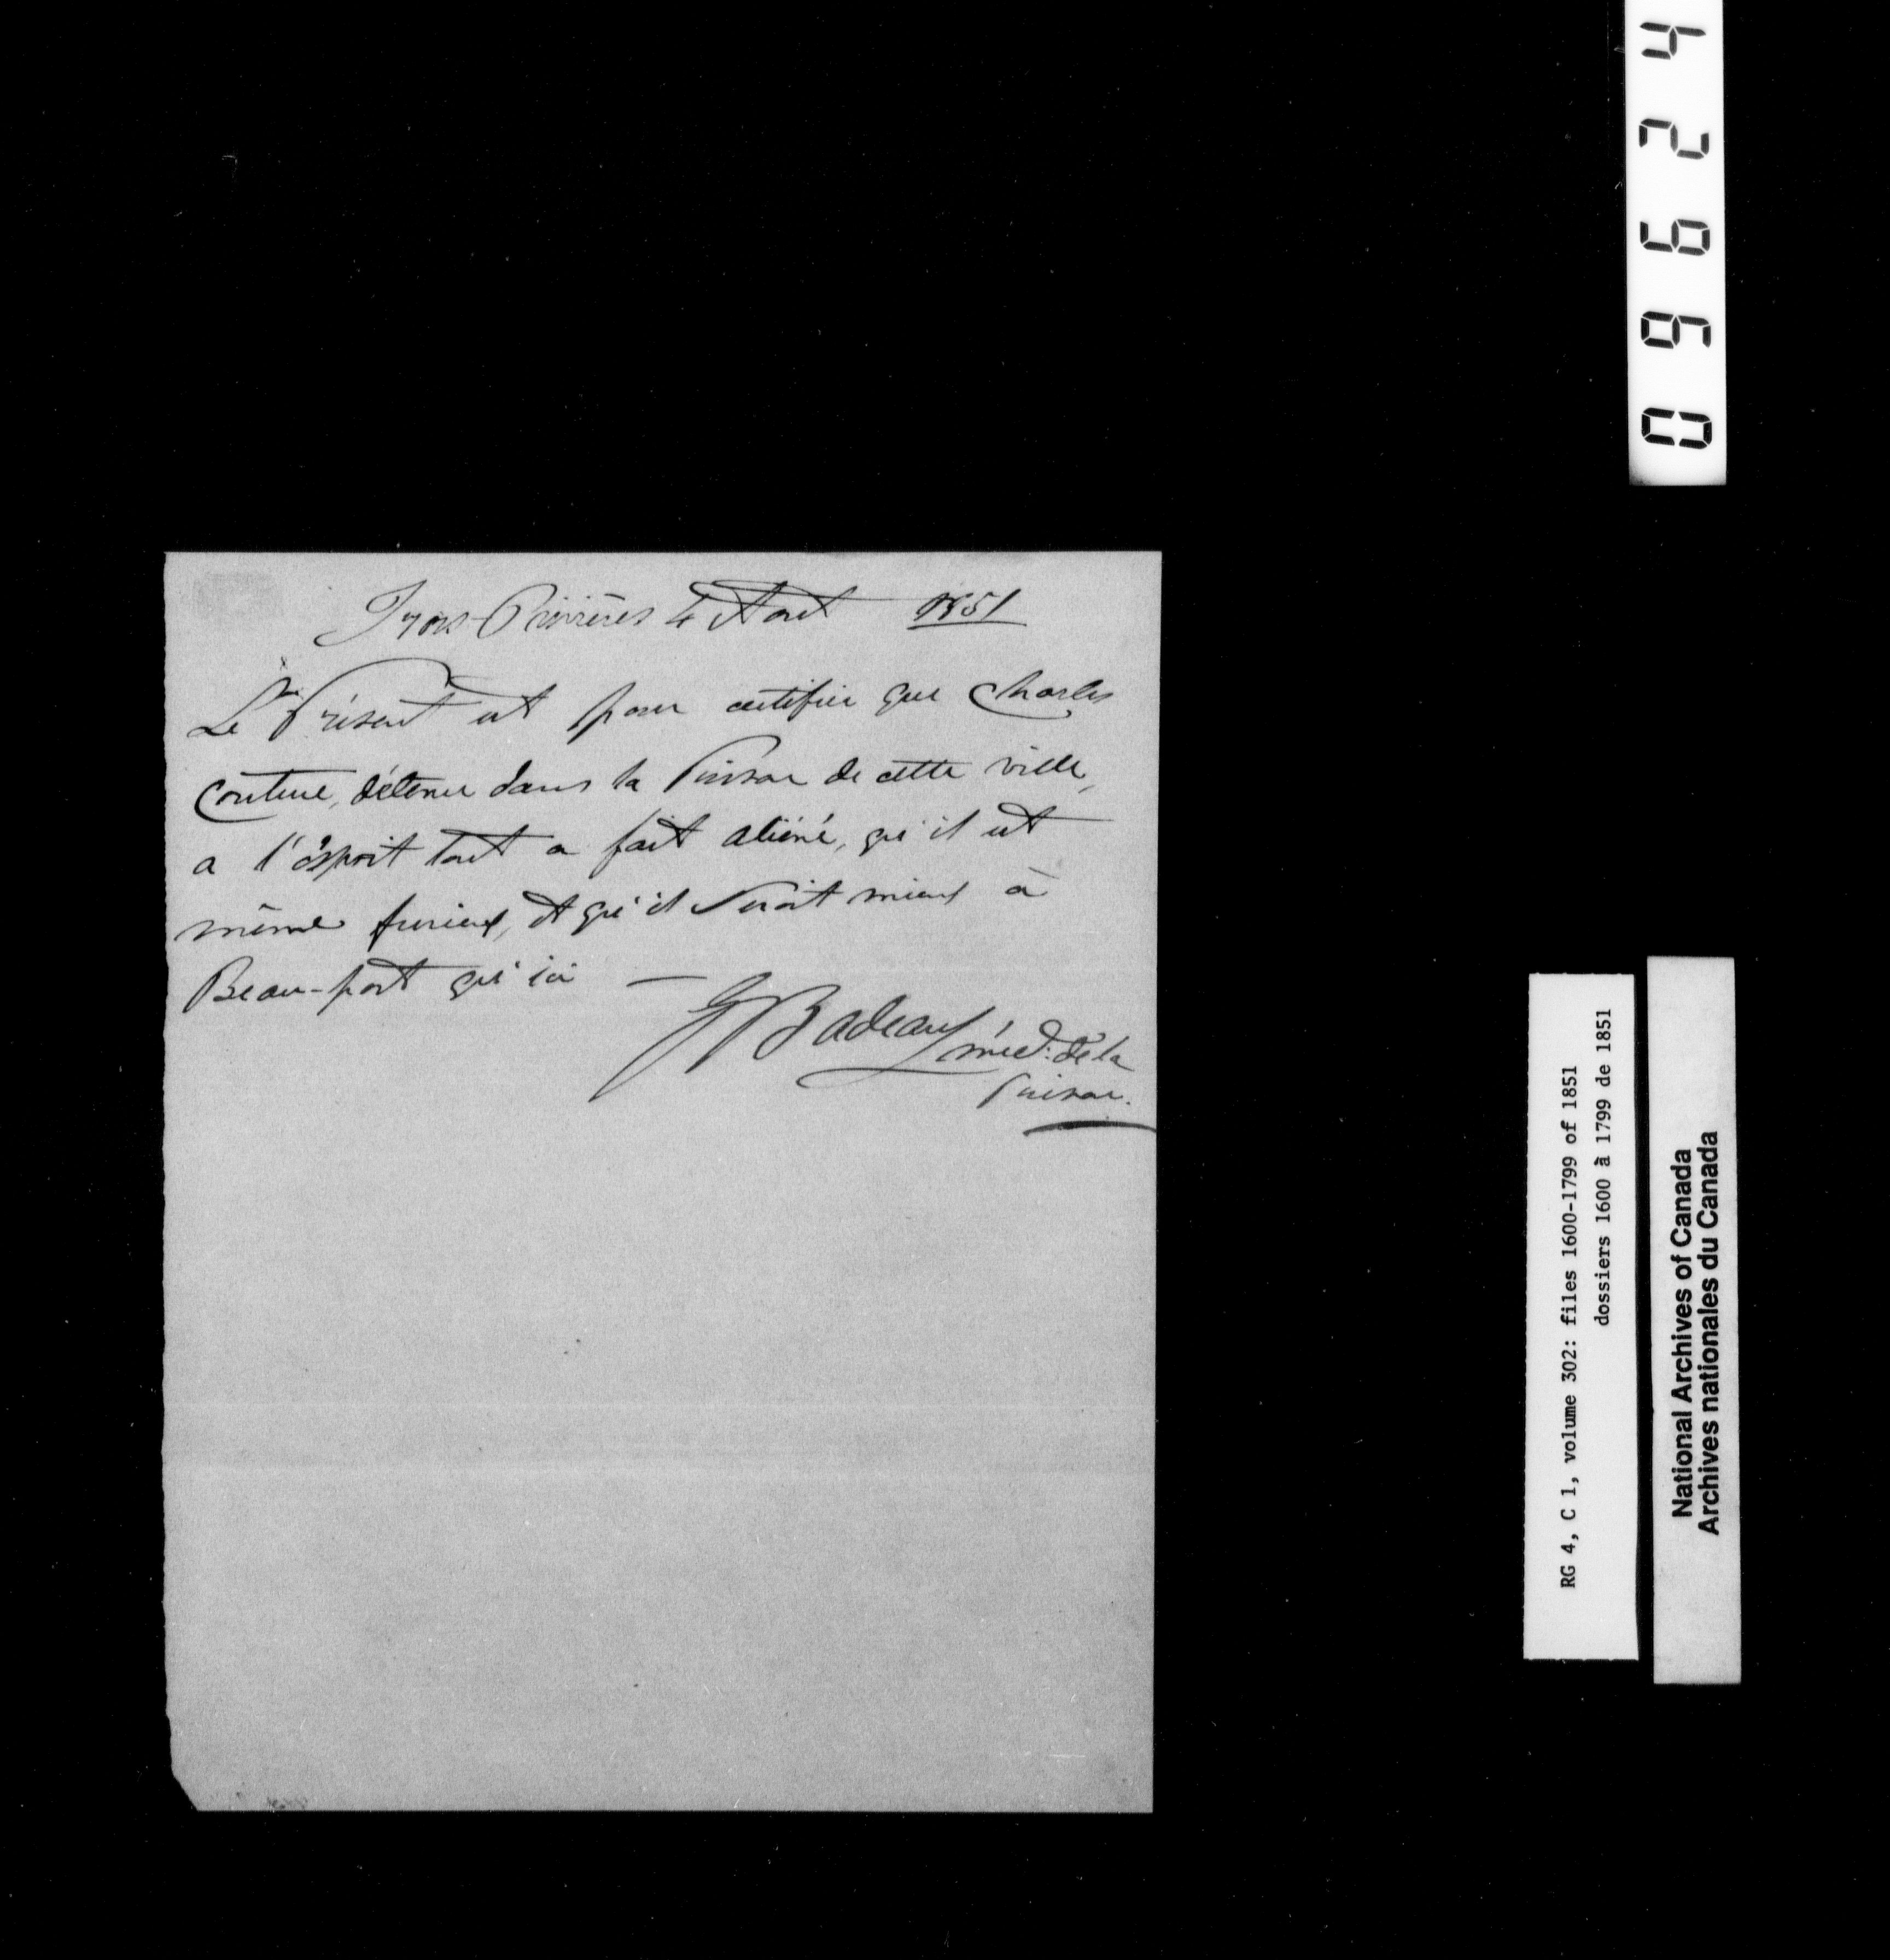 Trois-Rivières 4 Aout 1851
Le Présent est pour certifier que Charles
Couture, détenu dans la Prison de cette ville,
a l'ésprit tout a fait aliéné, qu'il est
même furieux, et qu'il serait mieux à
Beau-port qu'ici —
G Badeaux méd: de la
Prison.
09624
RG 4, C 1, volume 302: files 1600-1799 of 1851
dossiers 1600 à 1799 de 1851
National Archives of Canada
Archives nationales du Canada